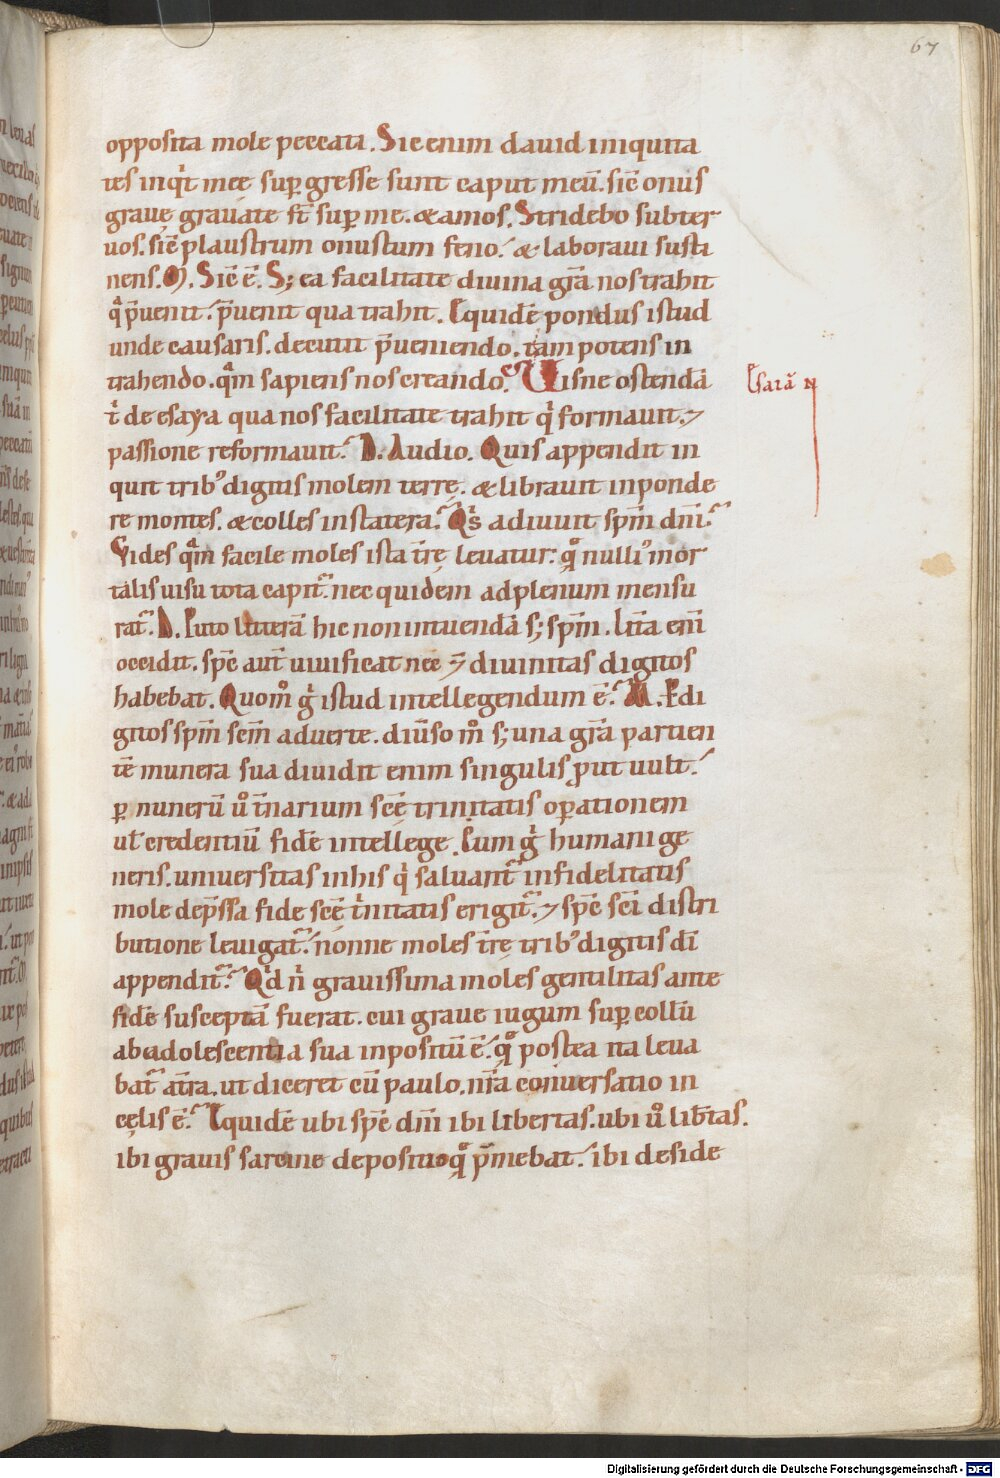 67
opposita mole peccati. Sic enim dauid iniquita
tes inq̇t meę sup̱gressę sunt caput meū. sic̄ onus
grauę grauatę st̄ sup̱ me. & amos. Stridebo subter
uos. sic̄ plaustrum onustum feno. & laboraui susti
nens. M. Sic̄ ē. S; ea facilitate diuina gr̄a nos trahit
q̇ p̄uenit. p̄uenit qua trahit. Equidē pondus istud
unde causaris. decutit p̄ueniendo. tam potens in
trahendo. q̄m sapiens nos creando. Visne ostendā
t̄ de esaya qua nos facilitate trahit q̇ formauit. ⁊
passione reformauit. D. Audio. Quis appendit in
quit trib᾽ digitis molem terrę. & librauit in ponde
re montes. & colles in statera. Qs̄ adiuuit spm̄ dn̄i.
Vides q̄m facile moles ista tr̄ę leuatur. q̊ nulli᾽ mor
talis uisu tota capit̄. nec quidem ad plenum mensu
rat̄. D. Puto litterā hic non intuendā s; spm̄. Lit̄a eni̅
occidit. spc̄ aut̄ uiuificat nec ⁊ diuinitas digitos
habebat. Quom̊ ġ istud intellegendum ē. M. Edi
gitos spm̄ scm̄ aduerte. diūso m̊ s; una gr̄a partien
tē munera sua diuidit enim singulis ꝓut uult.
ꝑ nunerū ů t̄narium scę̄ trinitatis op̱ationem
ul̄ credentiū fidē intellege. Cum ġ humani ge
neris. uniuersitas in his q̇ saluant̄ infidelitatis
mole dep̄ssa fide scę̄ t̄nitatis erigit̄. ⁊ spc̄ sci̅ distri
butione leuigat̄. nonne moles tr̄ę trib᾽ digitis di̅
appendit̄. Qd̄ n̄ grauissima moles gentilitas ante
fidē susceptā fuerat. cui graue iugum sup̱ collū
ab adolescentia sua inpositū ē. q̊ postea ita leua
bat̄ at̄ra. ut diceret cū paulo. nr̄a conuersatio in
cęlis ē. Equidē ubi spc̄ dn̄i ibi libertas. ubi ů lib̄tas.
ibi grauis sarcinę depositio q̊ p̄mebat. ibi deside
Esaiā
Digitalisierung gefördert durch die Deutsche Forschungsgemeinschaft - DFG